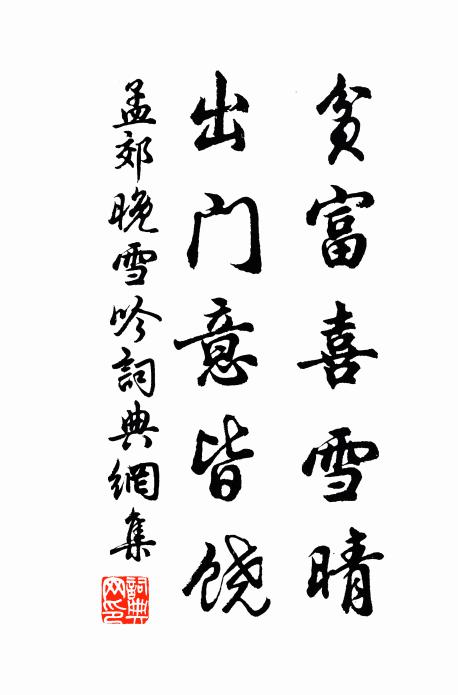 贫富喜雪晴
出门意皆饶
孟郊晚雪吟詞典網集
詞典
网印